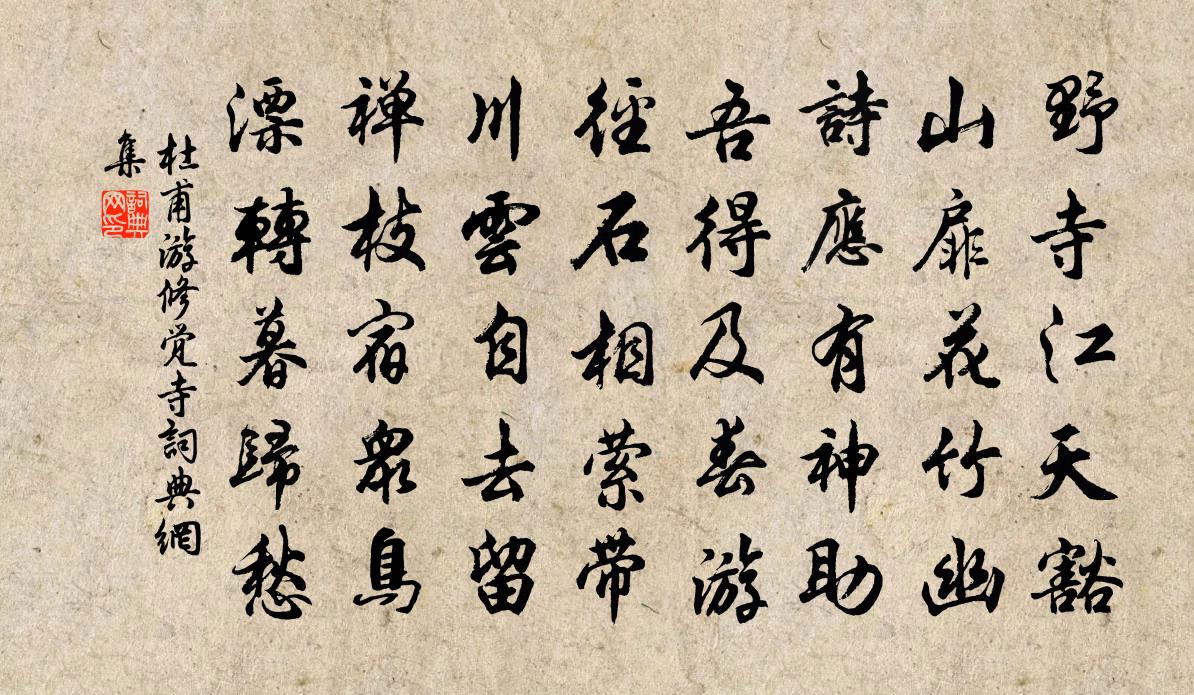 野寺江天豁
山扉花竹幽
詩應有神助
吾得及春游
徑石相萦带
川雲自去留
禅枝宿眾鳥
漂轉暮歸愁
杜甫游修觉寺詞典網
集
詞典
网印